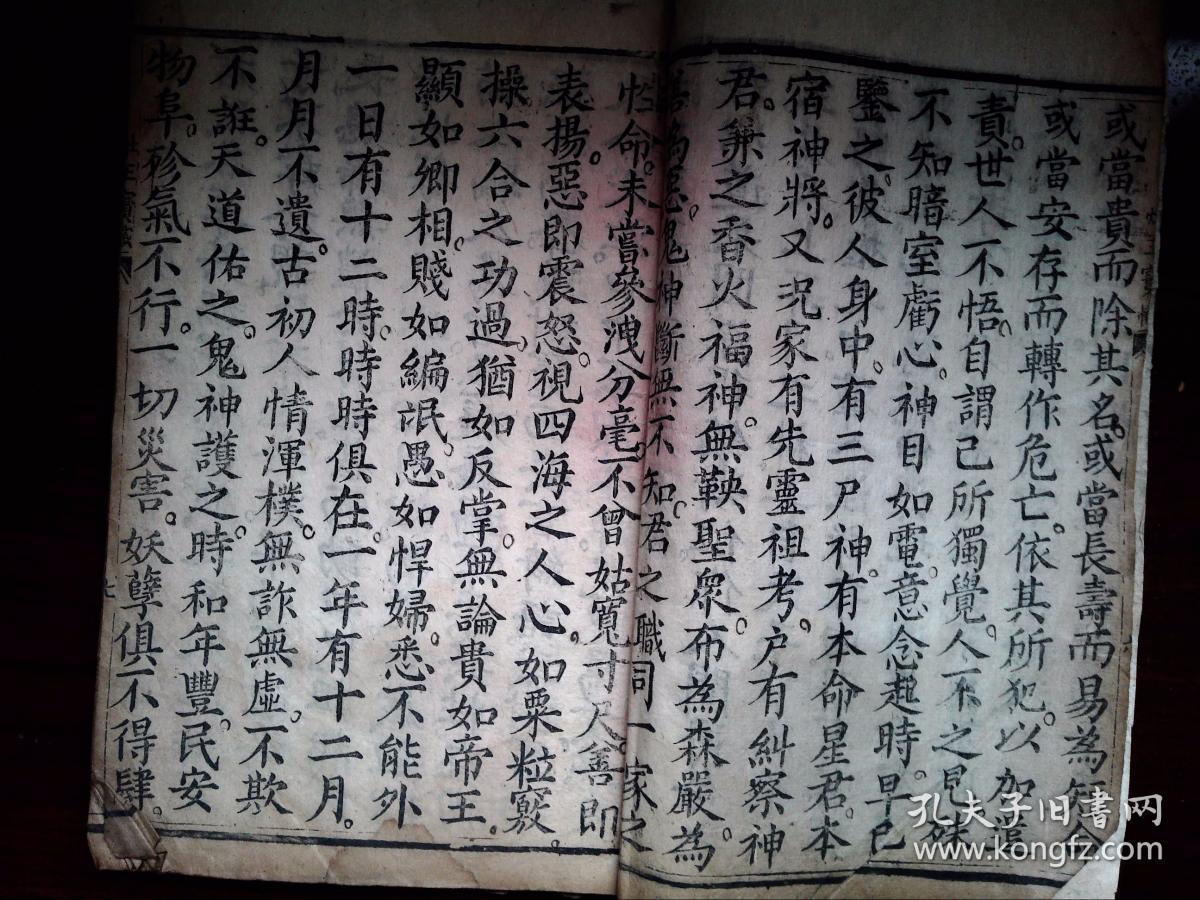 或當貴而除其名。或當長壽而易為短命。
或當安存而轉作危亡。依其所犯。以加譴
責。世人不悟。自謂己所獨覺。人不之見。殊
不知暗室虧心。神目如電。意念起時。早已
鑒之。彼人身中。有三尸神。有本命星君。本
宿神將。又況家有先靈祖考。户有糾察神
君。兼之香火福神。無鞅聖眾。布為森嚴。為
善為惡。鬼神斷無不知。君之職司一家之
性命。未嘗參洩分毫。不曾姑寬寸尺。善即
表揚。惡即震怒。視四海之人心。如粟粒竅。
操六合之功過。猶如反掌。無論貴如帝王。
顯如卿相。賤如編氓。愚如悍婦。悉不能外
一日有十二時。時時俱在。一年有十二月。
月月不遺。古初人情渾樸。無詐無虛。不欺
不誑。天道佑之。鬼神護之。時和年豐。民安
物阜。殄氣不行。一切災害。妖孽俱不得肆。
孔夫子旧書网
www.kongfz.com